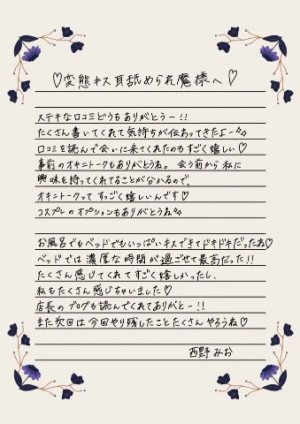 ♡変態キス耳舐められ魔様へ♡
ステキな口コミどうもありがとうー!!
たくさん書いてくれて気持ちが伝わってきたよー♪
口コミを読んで会いに来てくれたのもすごく嬉しい♡
事前のオキニトークもありがとうね。会う前から私に
興味を持ってくれてることが分かるので、
オキニトークって すごく嬉しいんです♡
コスプレのオプションもありがとうね♪
お風呂でもベッドでもいっぱいキスできてドキドキだったね♡
ベッドでは濃厚な時間が過ごせて最高だった!!
たくさん感じてくれてすごく嬉しかったし、
私もたくさん感じちゃいました♡
店長のブログも読んでくれてありがとー!!
また次回は今回やり残したことたくさんやろうね♡
西野みお